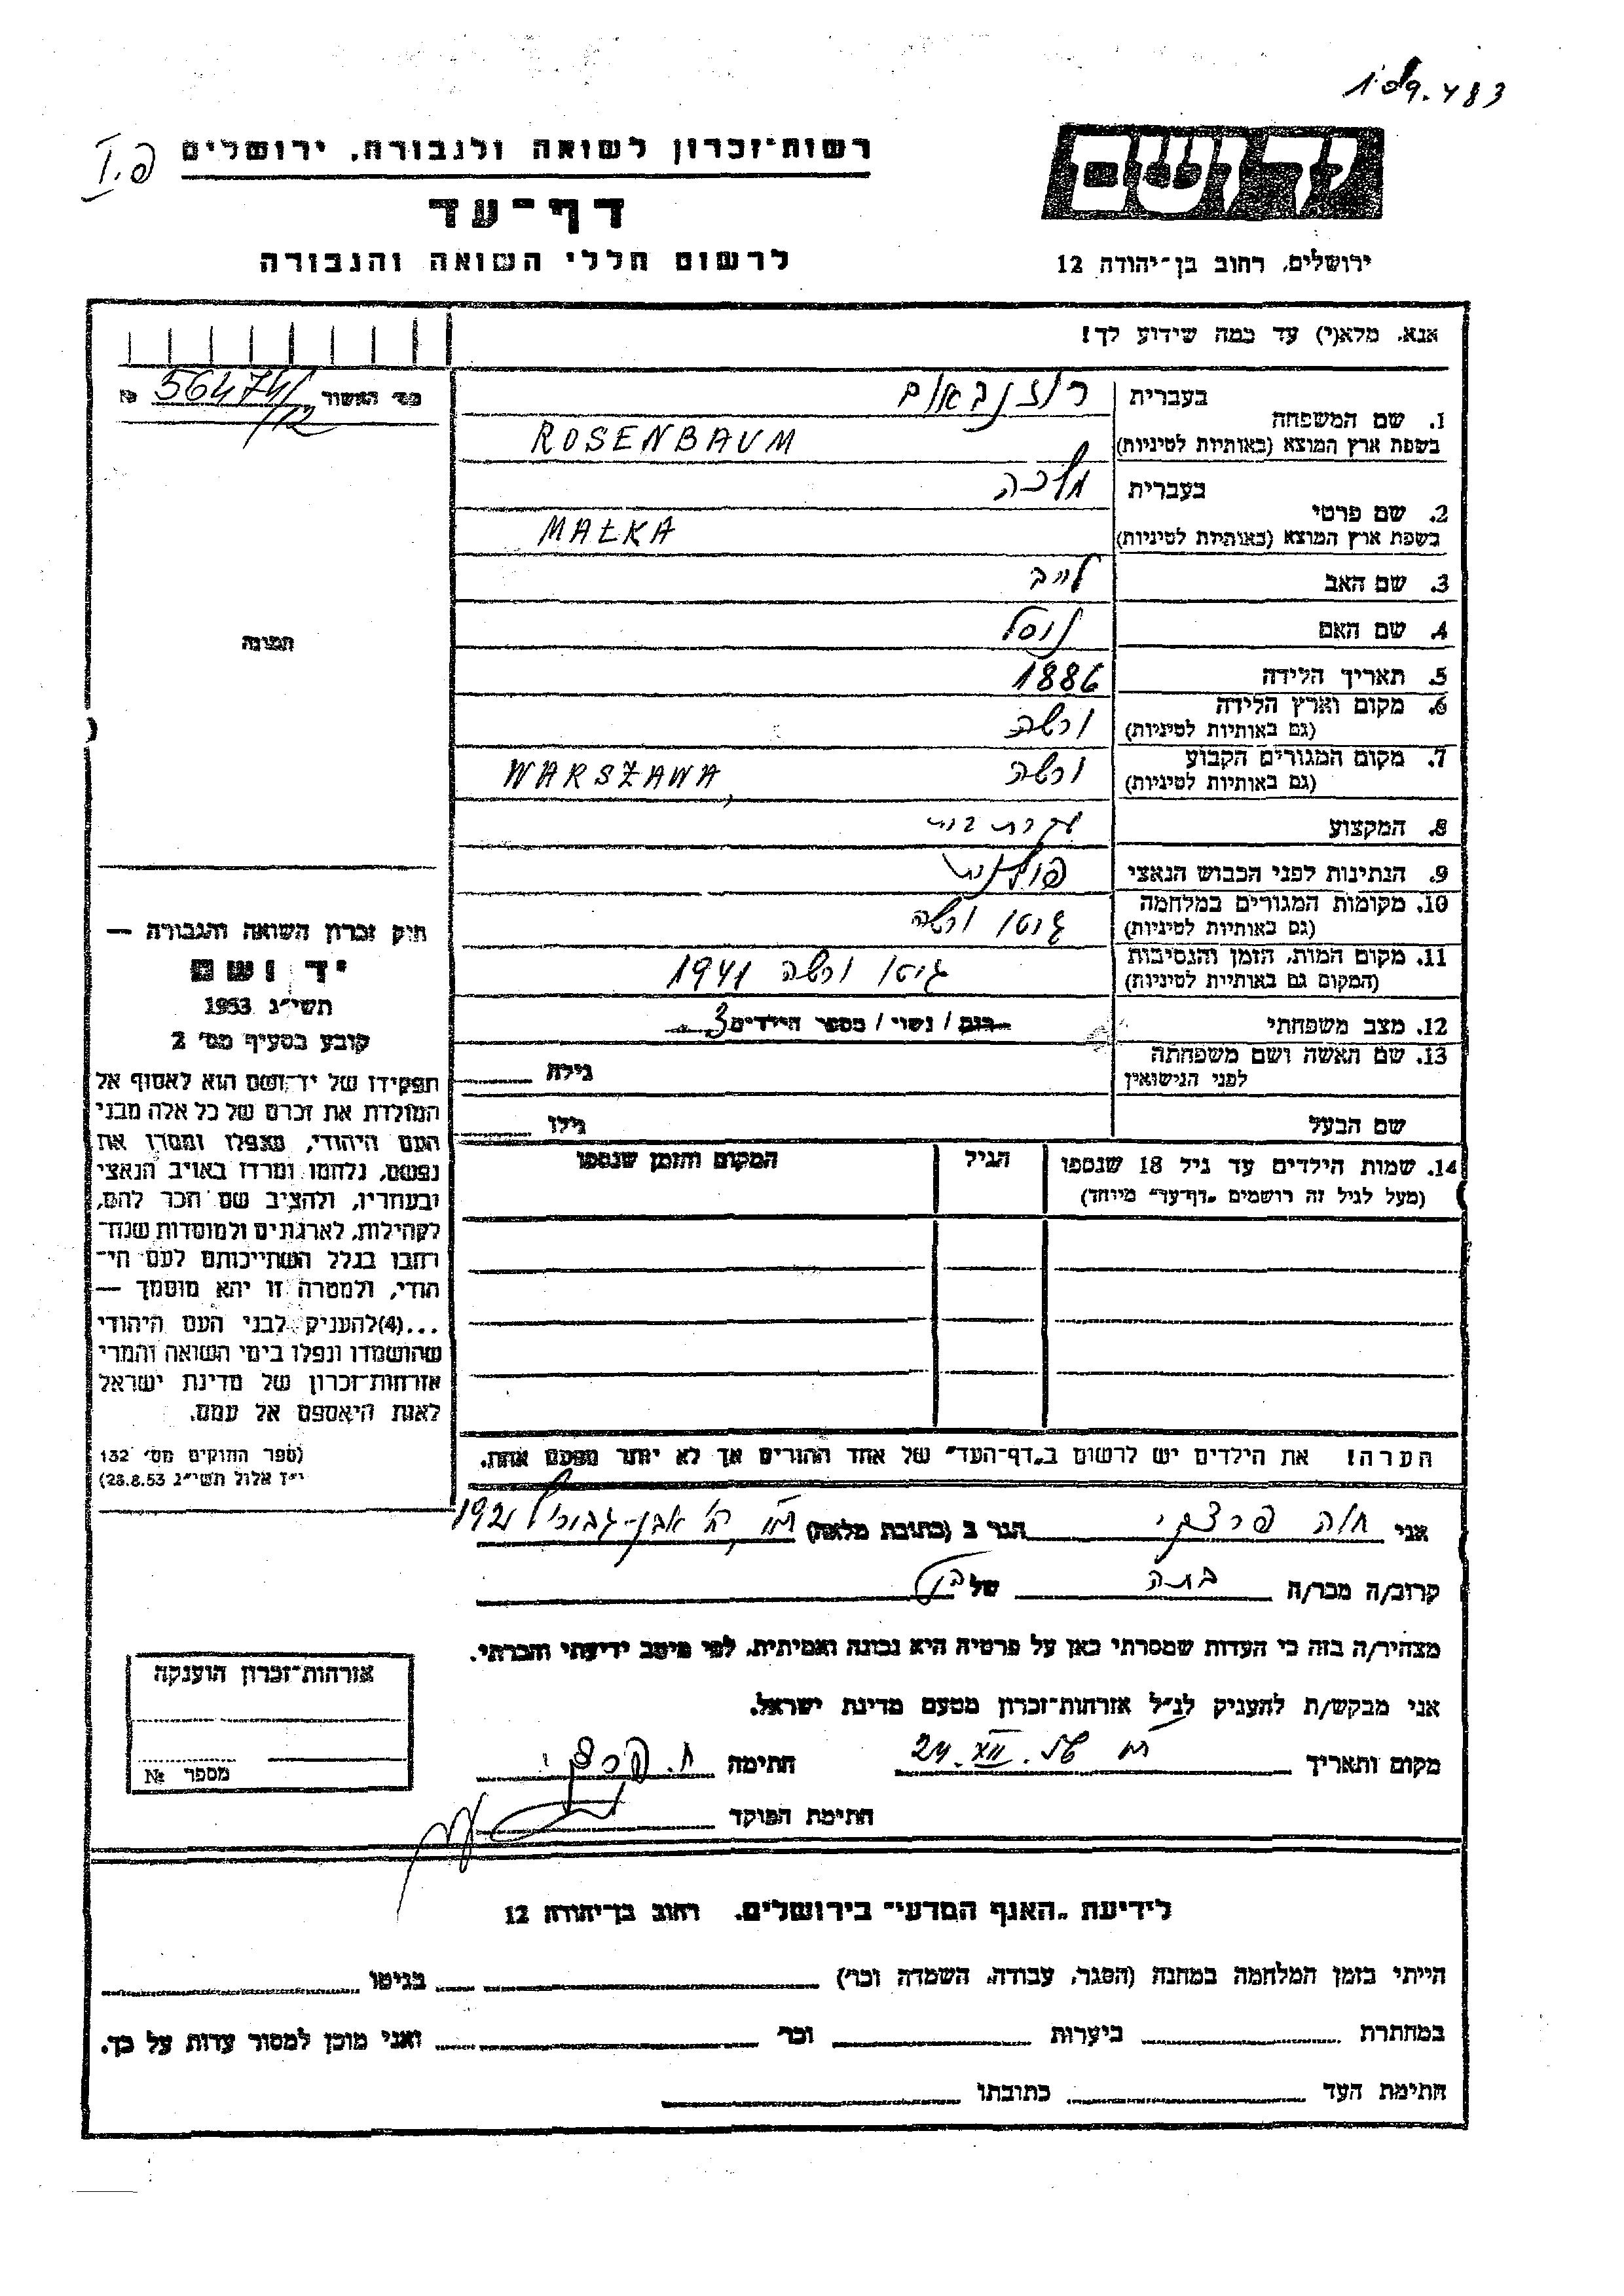 483
רשות־זכרון לשואה ולגבורה, ירושלים
ידושם
דף־עד
לרשום חללי השואה והגבורה
ירושלים, רחוב בן־יהודה 12
אנא, מלא(י) עד כמה שידוע לך!
מס׳ האשור № 56474/12
1. שם המשפחה
בעברית רוזנבאום
בשפת ארץ המוצא (באותיות לטיניות) ROSENBAUM
2. שם פרטי
בעברית מלכה
בשפת ארץ המוצא (באותיות לטיניות) MAŁKA
3. שם האב לייב
4. שם האם
תמונה
5. תאריך הלידה 1886
6. מקום וארץ הלידה ורשה
(גם באותיות לטיניות)
7. מקום המגורים הקבוע ורשה WARSZAWA
(גם באותיות לטיניות)
8. המקצוע עקרת בית
9. הנתינות לפני הכבוש הנאצי פולנית
10. מקומות המגורים במלחמה גיטו ורשה
(גם באותיות לטיניות)
11. מקום המות, הזמן והנסיבות גיטו ורשה 1941
(המקום גם באותיות לטיניות)
12. מצב משפחתי רוק / נשוי / מספר הילדים 3
13. שם האשה ושם משפחתה גילה
לפני הנישואין
שם הבעל גילו
14. שמות הילדים עד גיל 18 שנספו הגיל המקום והזמן שנספו
(מעל לגיל זה רושמים „דף־עד” מיוחד)
הערה! את הילדים יש לרשום ב„דף־העד” של אחד ההורים אך לא יותר מפעם אחת.
חוק זכרון השואה והגבורה —
יד ושם
תשי״ג 1953
קובע בסעיף מס׳ 2
תפקידו של יד־ושם הוא לאסוף אל
המולדת את זכרם של כל אלה מבני
העם היהודי, שנפלו ומסרו את
נפשם, נלחמו ומרדו באויב הנאצי
ובעוזריו, ולהציב שם וזכר להם,
לקהילות, לארגונים ולמוסדות שנח־
רבו בגלל השתייכותם לעם הי־
הודי, ולמטרה זו יהא מוסמך —
...(4)להעניק לבני העם היהודי
שהושמדו ונפלו בימי השואה והמרי
אזרחות־זכרון של מדינת ישראל
לאות היאספם אל עמם.
(ספר החוקים מס׳ 132
י״ז אלול תשי״ג 28.8.53)
אני חוה הגר ב (כתובת מלאה) אבן-גבירול
קרוב/ה מכר/ה בתה של
מצהיר/ה בזה כי העדות שמסרתי כאן על פרטיה היא נכונה ואמיתית, לפי מיטב ידיעתי והכרתי.
אני מבקש/ת להעניק לנ״ל אזרחות־זכרון מטעם מדינת ישראל.
מקום ותאריך 24.XII חתימה
חתימת הפוקד
אזרחות־זכרון הוענקה
מספר №
לידיעת „האגף המדעי” בירושלים, רחוב בן־יהודה 12
הייתי בזמן המלחמה במחנה (הסגר, עבודה, השמדה וכו׳) בגיטו
במחתרת ביערות וכו׳ ואני מוכן למסור עדות על כך.
חתימת העד כתובתו